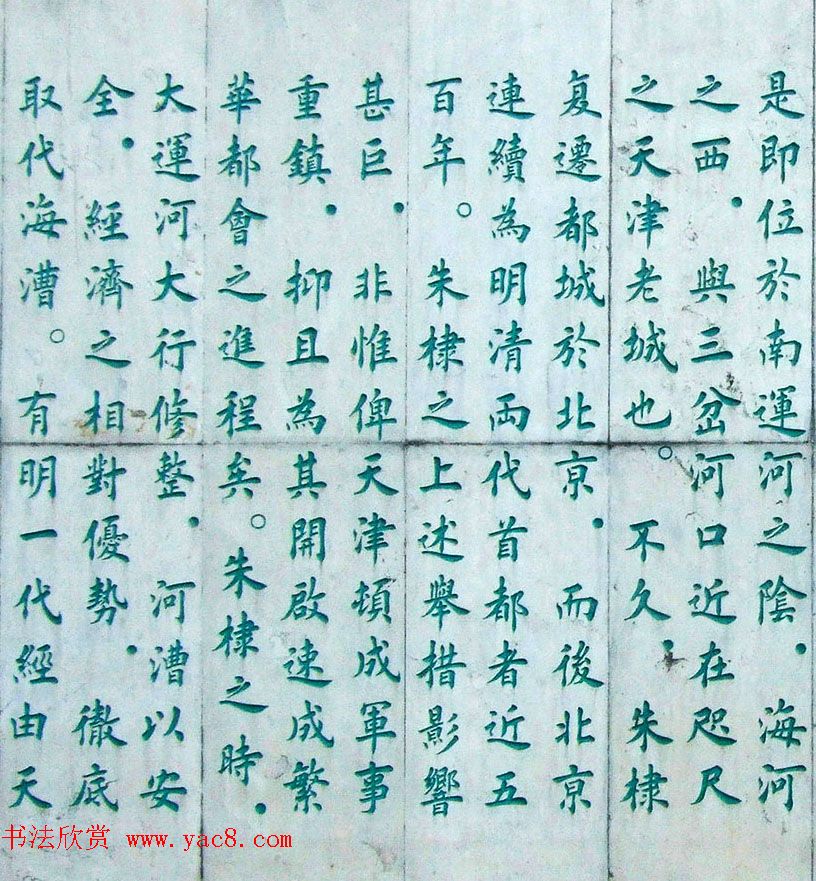 是即位於南運河之陰．海河
之西．與三岔河口近在咫尺
之天津老城也。不久．朱棣
复遷都城於北京．而後北京
連續為明清兩代首都者近五
百年。朱棣之上述舉措影響
甚巨．非惟俾天津頓成軍事
重鎮．抑且為其開啟速成繁
華都會之進程矣。朱棣之時．
大運河大行修整．河漕以安
全．經濟之相對優勢．徹底
取代海漕。有明一代經由天
书法欣赏 www.yac8.com